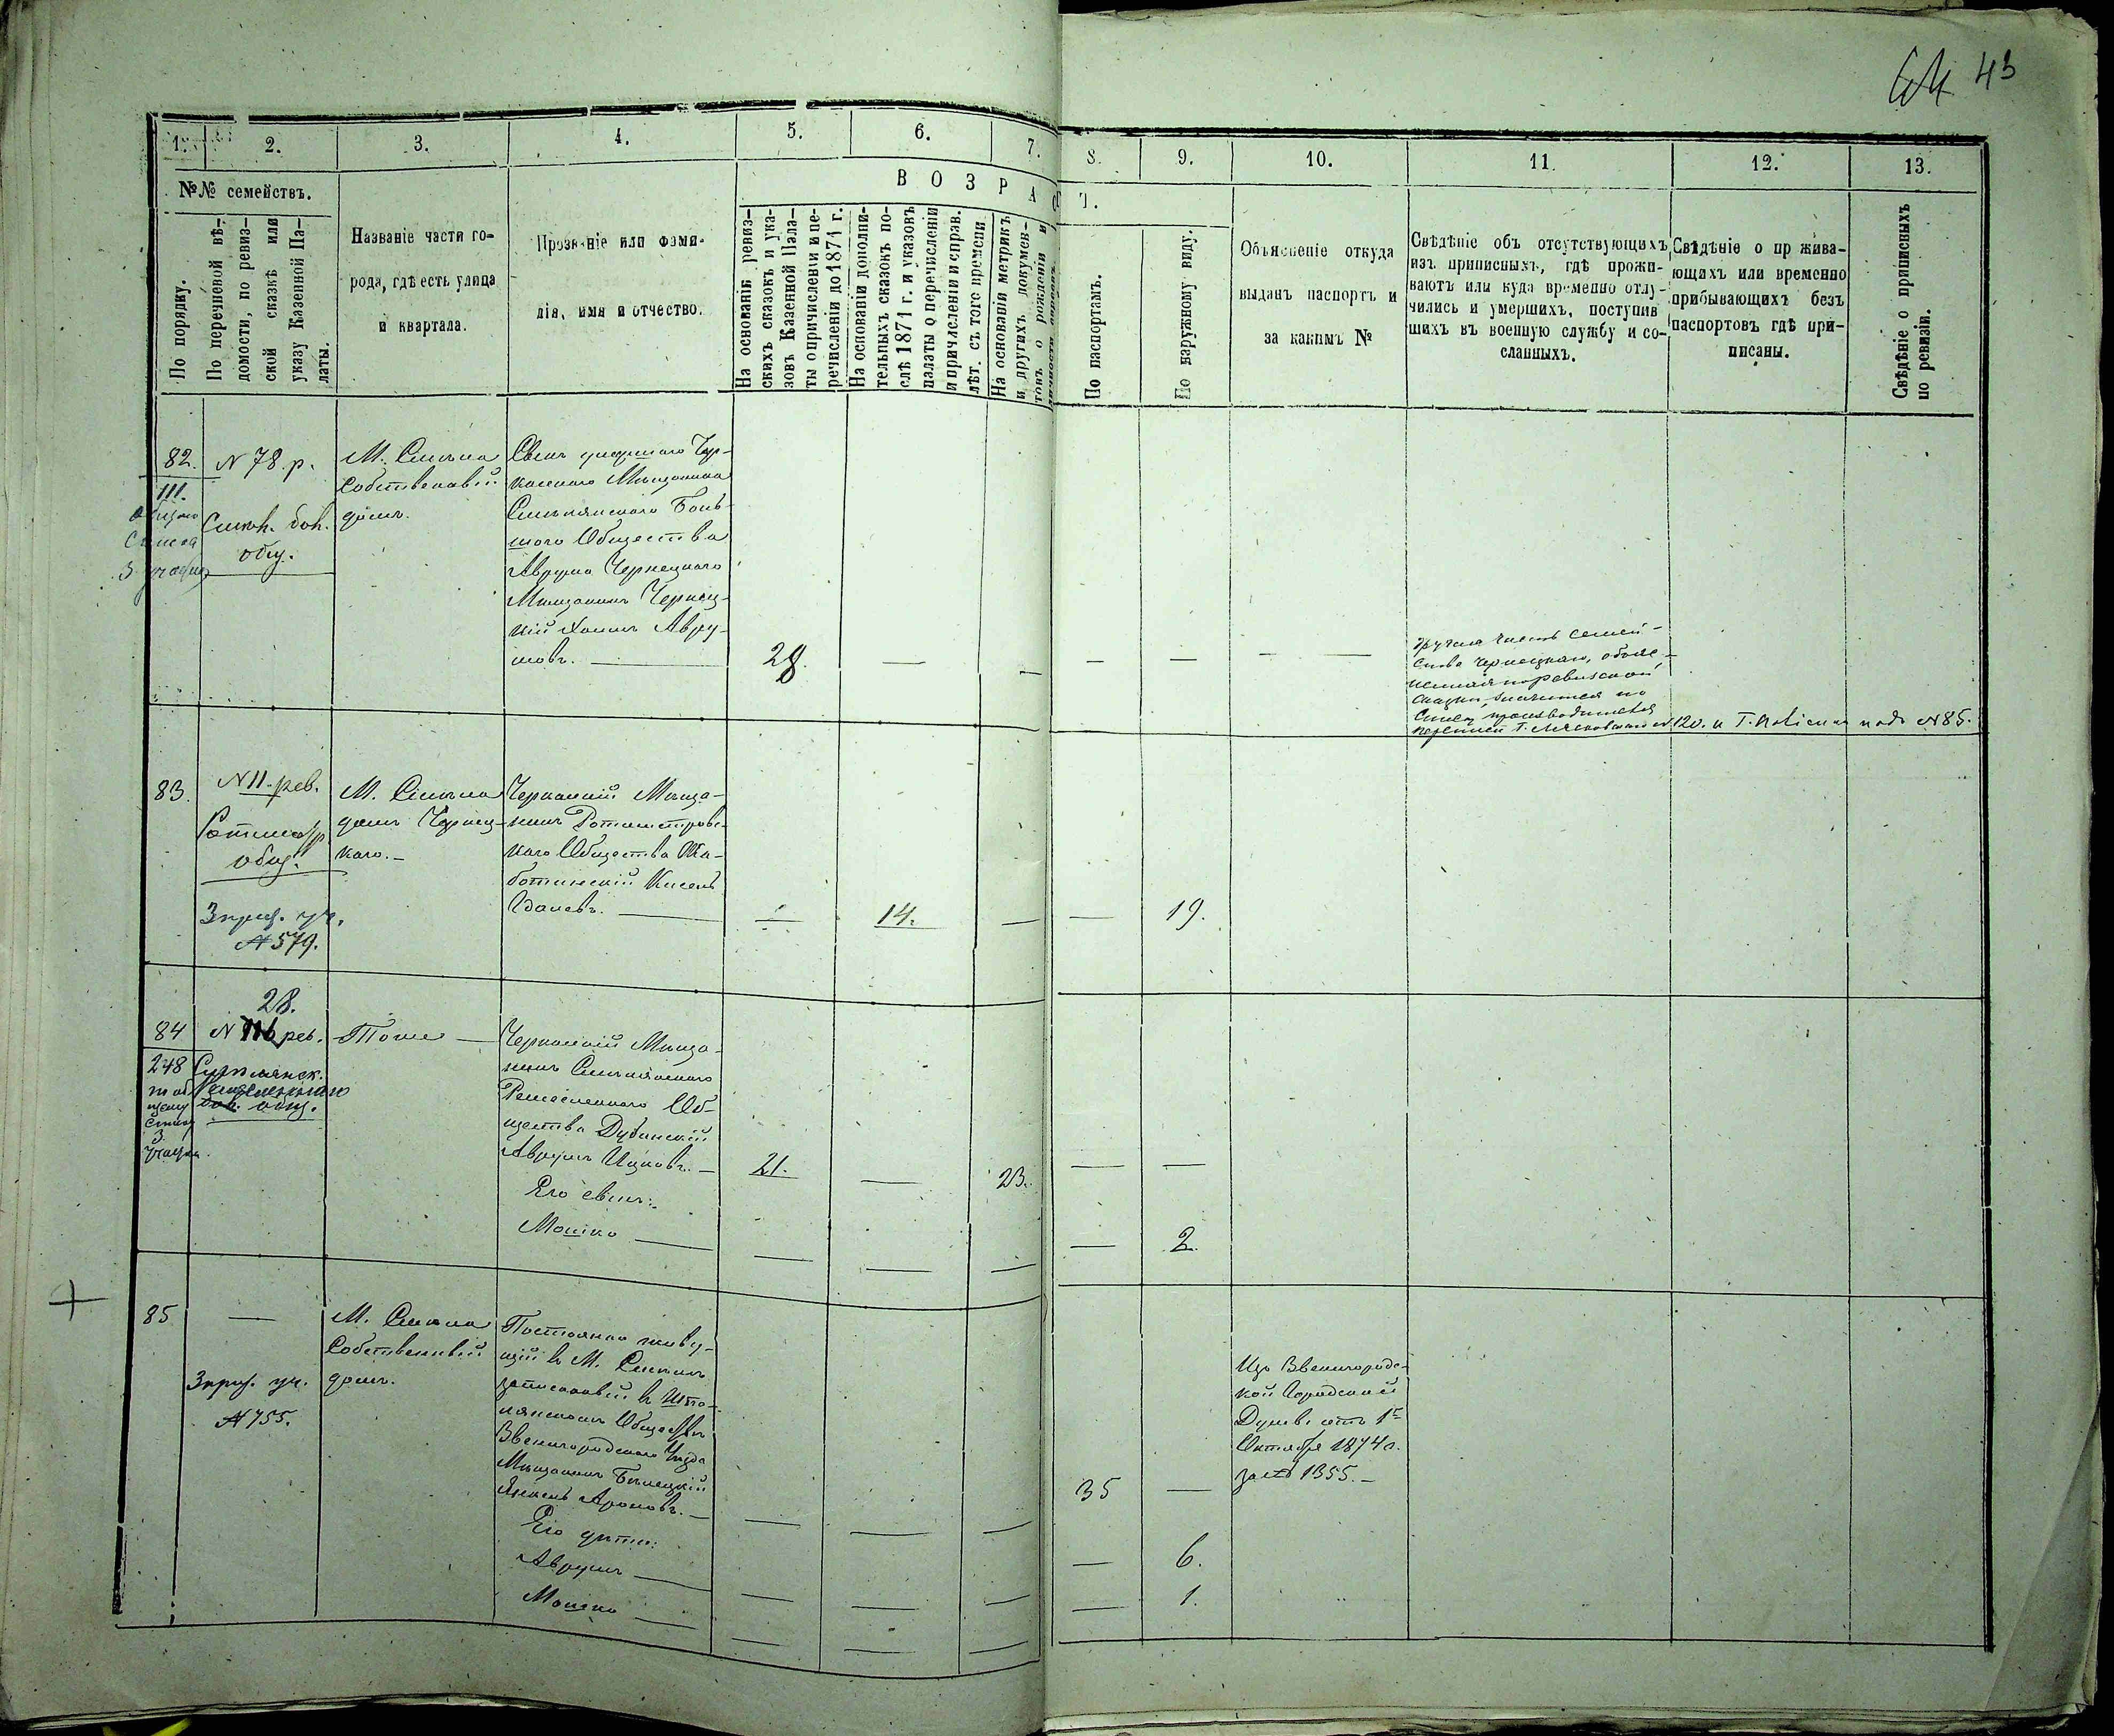 43
1.
2.
3.
4.
5.
6.
7.
8.
9.
10.
11.
12.
13.
№№ семействъ.
ВОЗРАСТ.
По порядку.
По перечневой вѣ-
домости, по ревиз-
ской сказкѣ или
указу Казенной Па-
латы.
Названіе части го-
рода, гдѣ есть улица
и квартала.
Прозваніе или фами-
лія, имя и отчество.
На основаніи ревиз-
скихъ сказокъ и ука-
зовъ Казенной Пала-
ты о причисленіи и пе-
речисленіи до 1871 г.
На основаніи дополни-
тельныхъ сказокъ по-
слѣ 1871 г. и указовъ
палаты о перечисленіи
и причисленіи и справ.
лѣт. съ того времени
На основаніи метрикъ
и другихъ докумен-
товъ о рожденіи и
По паспортамъ.
По наружному виду.
Объясненіе откуда
выданъ паспортъ и
за какимъ №
Свѣдѣніе объ отсутствующихъ
изъ приписныхъ, гдѣ прожи-
ваютъ или куда временно отлу-
чились и умершихъ, поступив
шихъ въ военную службу и со-
сланныхъ.
Свѣдѣніе о пр жива-
ющихъ или временно
прибывающихъ безъ
паспортовъ гдѣ при-
писаны.
Свѣдѣніе о приписныхъ
по ревизіи.
82.
111.
общаго
списка
3 участка
N 78. р.
Смѣл. бол.
общ.
М. Смѣла
Собственный
домъ.
Сынъ умершаго Чер-
каскаго Мѣщанина
Смѣлянскаго Боль-
шого Общества
Аврума Чернецкаго
Мѣщанинъ Чернец-
кій Хаимъ Авру-
мовъ. —
28.
—
—
—
—
— —
Другая часть семей-
ства Чернецкаго,
сказки, значится по
120. и Г. подъ N 85.
83.
N 11. рев.
Ротмистр
общ.
3 приз. уч.
N 579.
М. Смѣла
домъ Чернец-
каго. —
Черкаскій Мѣща-
нинъ Ротмистровс-
каго Общества Жа-
ботинскій Кисель
—
14.
—
—
19.
84
248
по об
щему
списку
3
участк.
28.
N 116 рев.
Смѣлянск.
общ.
Тоже —
Черкаскій Мѣща-
нинъ Смѣлянскаго
Ремесленнаго Об-
щества Дубинскій
Аврумъ Ицковъ. —
Его сынъ:
Мошко —
21.
—
23.
—
—
—
—
—
—
2.
85
—
3 приз. уч.
N 755.
М. Смѣла
Собственный
домъ.
Постоянно живу-
щій въ М. Смѣлѣ
записанный въ Шпо-
лянскомъ Обществѣ
Звенигородскаго Уѣзда
Мѣщанинъ Бѣлецкій
Янкель Ароновъ. —
Его дѣти:
Аврумъ —
Мошко —
—
—
—
35
—
Изъ Звенигородс-
кой Городской
Думы отъ 1го
Октября 1874 г.
за N 1355. —
—
—
—
—
6.
—
—
—
—
1.